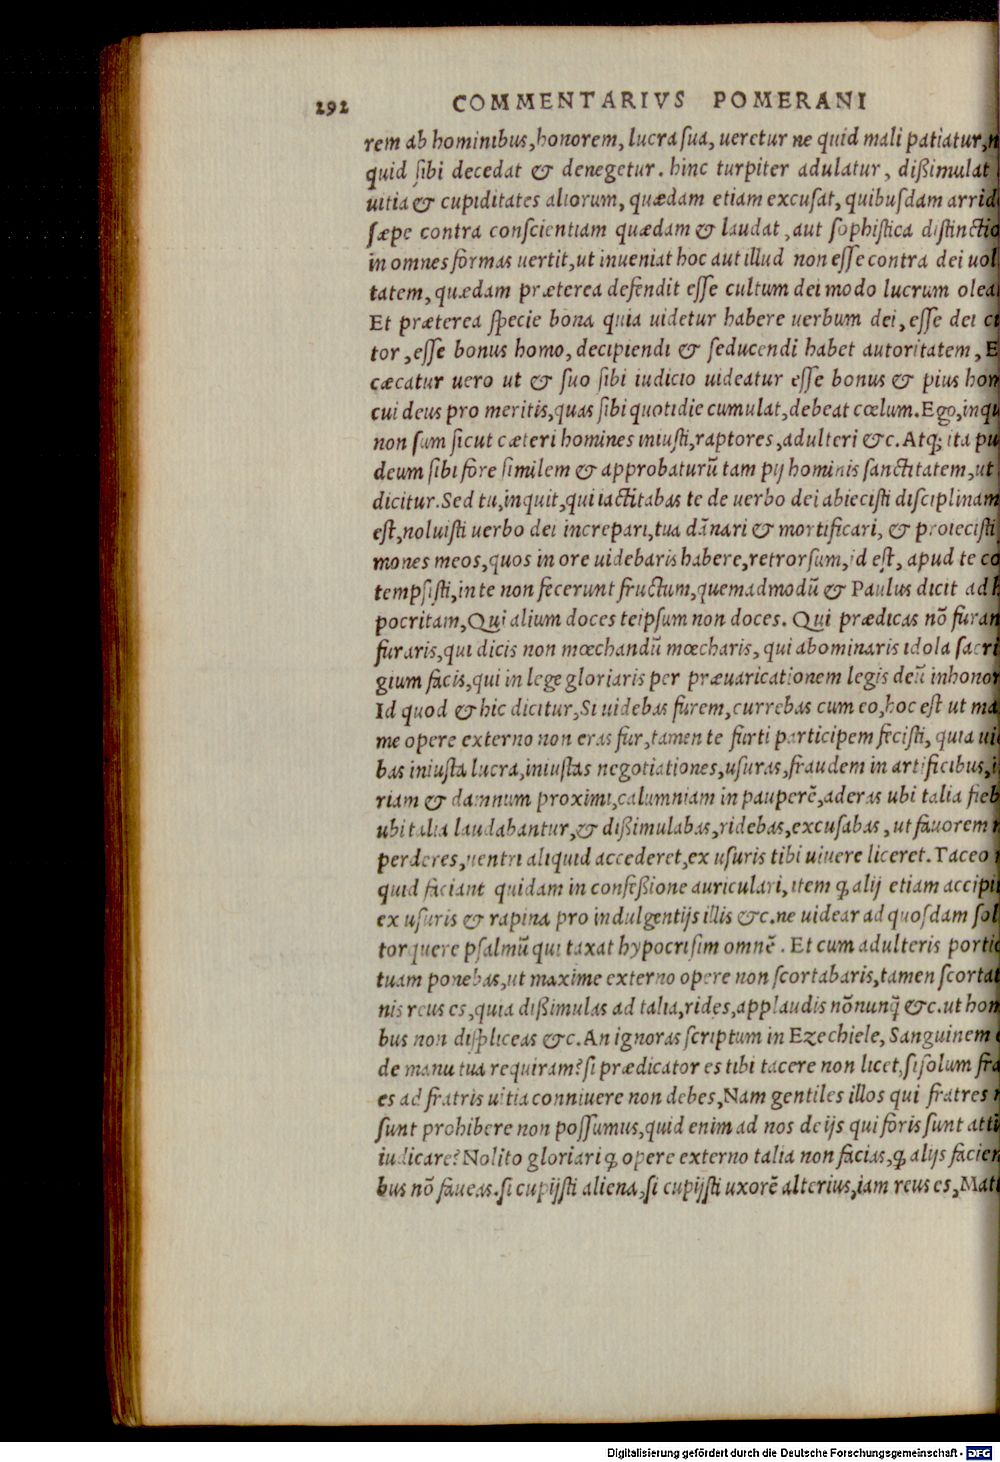 292 COMMENTARIVS POMERANI
rem ab hominibus, honorem, lucra sua, ueretur ne quid mali patiatur, n
quid sibi decedat & denegetur. hinc turpiter adulatur, dißimulat
uitia & cupiditates aliorum, quædam etiam excusat, quibusdam arrid
sæpe contra conscientiam quædam & laudat, aut sophistica distinctio
in omnes formas uertit, ut inueniat hoc aut illud non esse contra dei uol
tatem, quædam præterea defendit esse cultum dei modo lucrum olea
Et præterea specie bona quia uidetur habere uerbum dei, esse dei cu
tor, esse bonus homo, decipiendi & seducendi habet autoritatem, E
cæcatur uero ut & suo sibi iudicio uideatur esse bonus & pius hom
cui deus pro meritis, quas sibi quotidie cumulat, debeat cœlum. Ego, inqu
non sum sicut cæteri homines iniusti, raptores, adulteri &c. Atq; ita pu
deum sibi fore similem & approbaturū tam pij hominis sanctitatem, ut
dicitur. Sed tu, inquit, qui iactitabas te de uerbo dei abiecisti disciplinam
est, noluisti uerbo dei increpari, tua dānari & mortificari, & proiecisti
mones meos, quos in ore uidebaris habere, retrorsum, id est, apud te co
tempsisti, in te non fecerunt fructum, quemadmodū & Paulus dicit ad h
pocritam, Qui alium doces teipsum non doces. Qui prædicas nō furan
furaris, qui dicis non mœchandū mœcharis, qui abominaris idola sacri
gium facis, qui in lege gloriaris per præuaricationem legis deū inhonor
Id quod & hic dicitur, Si uidebas furem, currebas cum eo, hoc est ut ma
me opere externo non eras fur, tamen te furti participem fecisti, quia uid
bas iniusta lucra, iniustas negotiationes, usuras, fraudem in artificibus, i
riam & damnum proximi, calumniam in pauperē, aderas ubi talia fieb
ubi talia laudabantur, & dißimulabas, ridebas, excusabas, ut fauorem n
perderes, uentri aliquid accederet, ex usuris tibi uiuere liceret. Taceo
quid faciant quidam in confeßione auriculari, item q, alij etiam accipi
ex usuris & rapina pro indulgentijs illis &c. ne uidear ad quosdam sol
torquere psalmū qui taxat hypocrisim omnē. Et cum adulteris portio
tuam ponebas, ut maxime externo opere non scortabaris, tamen scortat
nis reus es, quia dißimulas ad talia, rides, applaudis nōnunq̄ &c. ut hom
bus non displiceas &c. An ignoras scriptum in Ezechiele, Sanguinem
de manu tua requiram? si prædicator es tibi tacere non licet, si solum fra
es ad fratris uitia conniuere non debes, Nam gentiles illos qui fratres n
sunt prohibere non possumus, quid enim ad nos de ijs qui foris sunt atti
iudicare? Nolito gloriari q, opere externo talia non facias, q, alijs facien
bus nō faueas. si cupijsti aliena, si cupijsti uxorē alterius, iam reus es, Matt
Digitalisierung gefördert durch die Deutsche Forschungsgemeinschaft - DFG